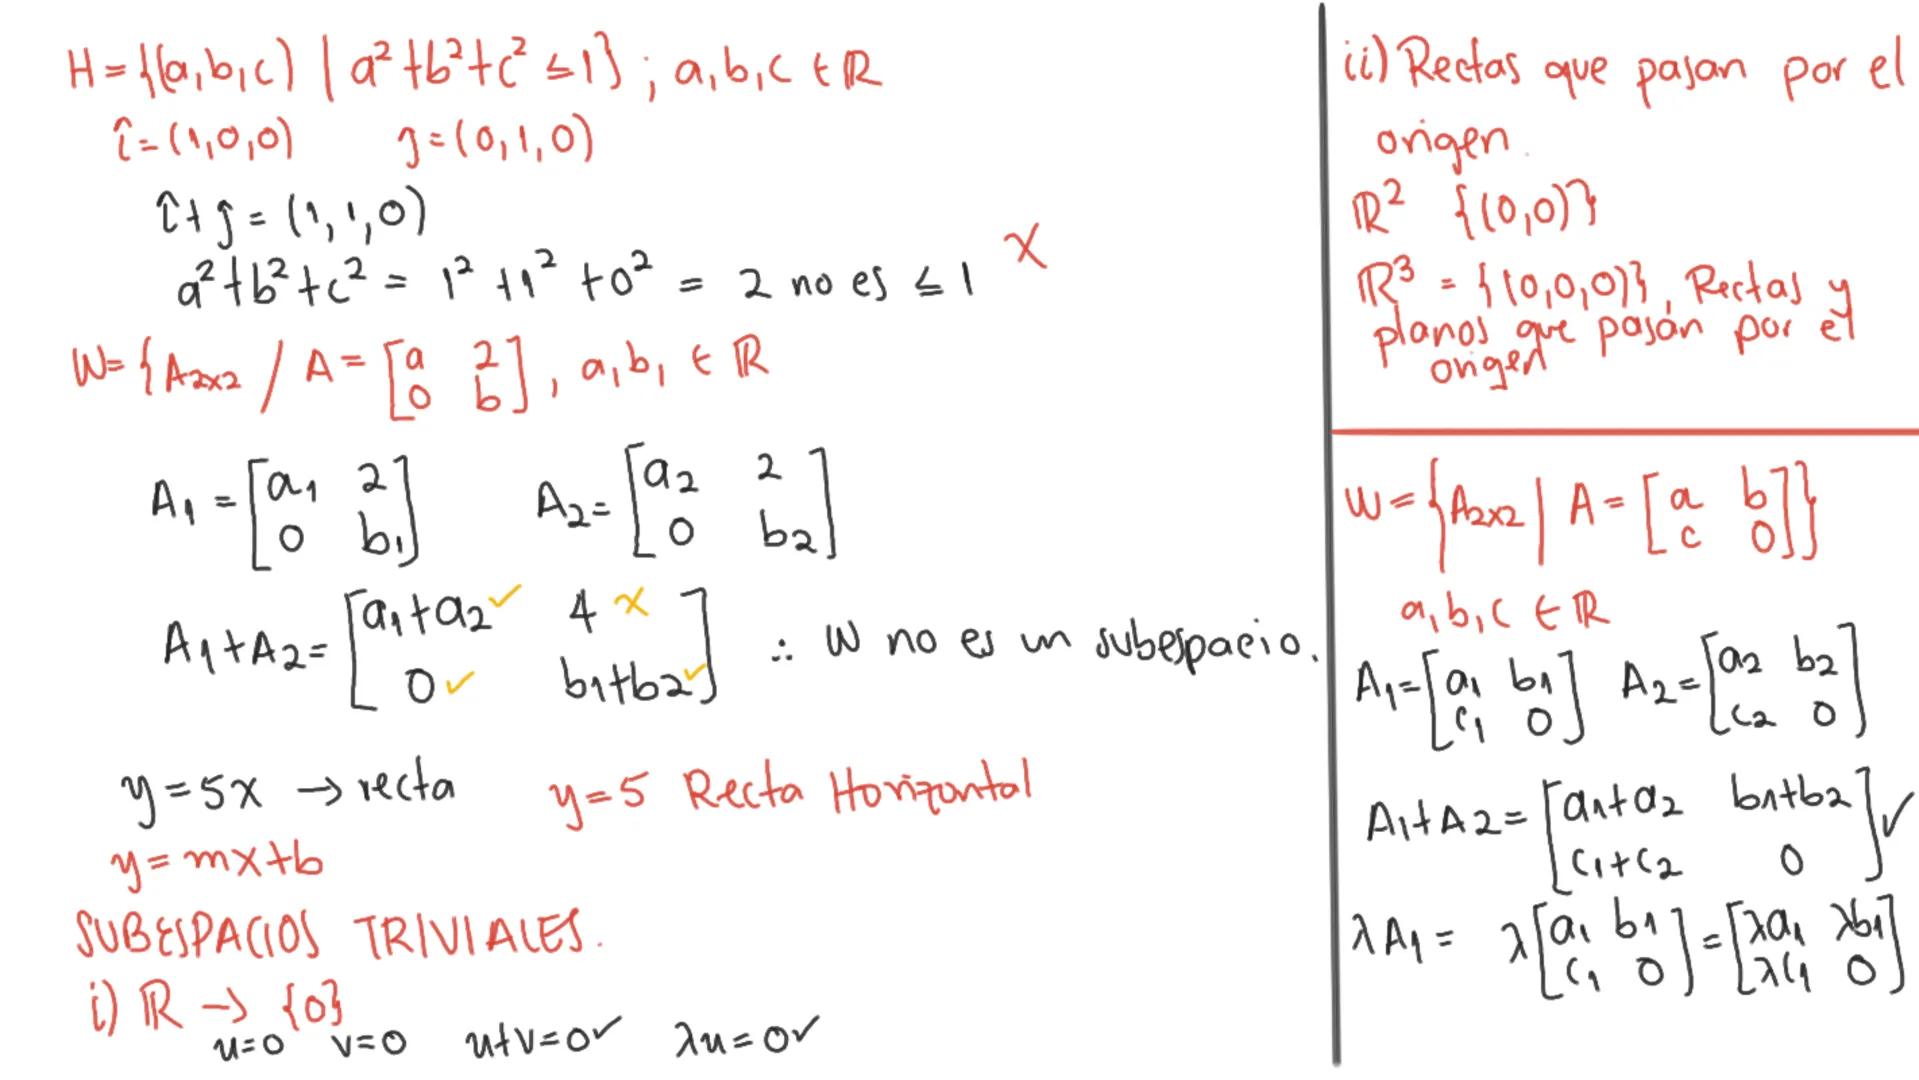 H = {(a,b,c) | a² + b² + c² ≤ 1} ; a,b,c ∈ ℝ
î = (1,0,0) ĵ = (0,1,0)
î + ĵ = (1,1,0)
a² + b² + c² = 1² + 1² + 0² = 2 no es ≤ 1 X
W = {A2x2 / A = [a 2; 0 b], a,b, ∈ ℝ
A₁ = [a₁ 2; 0 b₁] A₂ = [a₂ 2; 0 b₂]
A₁ + A₂ = [a₁+a₂ ✓ 4 x; 0 ✓ b₁+b₂ ✓] ∴ W no es un subespacio.
y = 5x → recta y = 5 Recta Horizontal
y = mx + b
SUBESPACIOS TRIVIALES.
i) ℝ → {0}
u=0 v=0 u+v=0 ✓ λu=0 ✓
ii) Rectas que pasan por el
origen.
ℝ² {(0,0)}
ℝ³ = {(0,0,0)}, Rectas y
planos que pasán por el
origen
W = {A2x2 | A = [a b; c 0]}
a,b,c ∈ ℝ
A₁ = [a₁ b₁; c₁ 0] A₂ = [a₂ b₂; c₂ 0]
A₁ + A₂ = [a₁+a₂ b₁+b₂; c₁+c₂ 0] ✓
λA₁ = λ[a₁ b₁; c₁ 0] = [λa₁ λb₁; λc₁ 0]